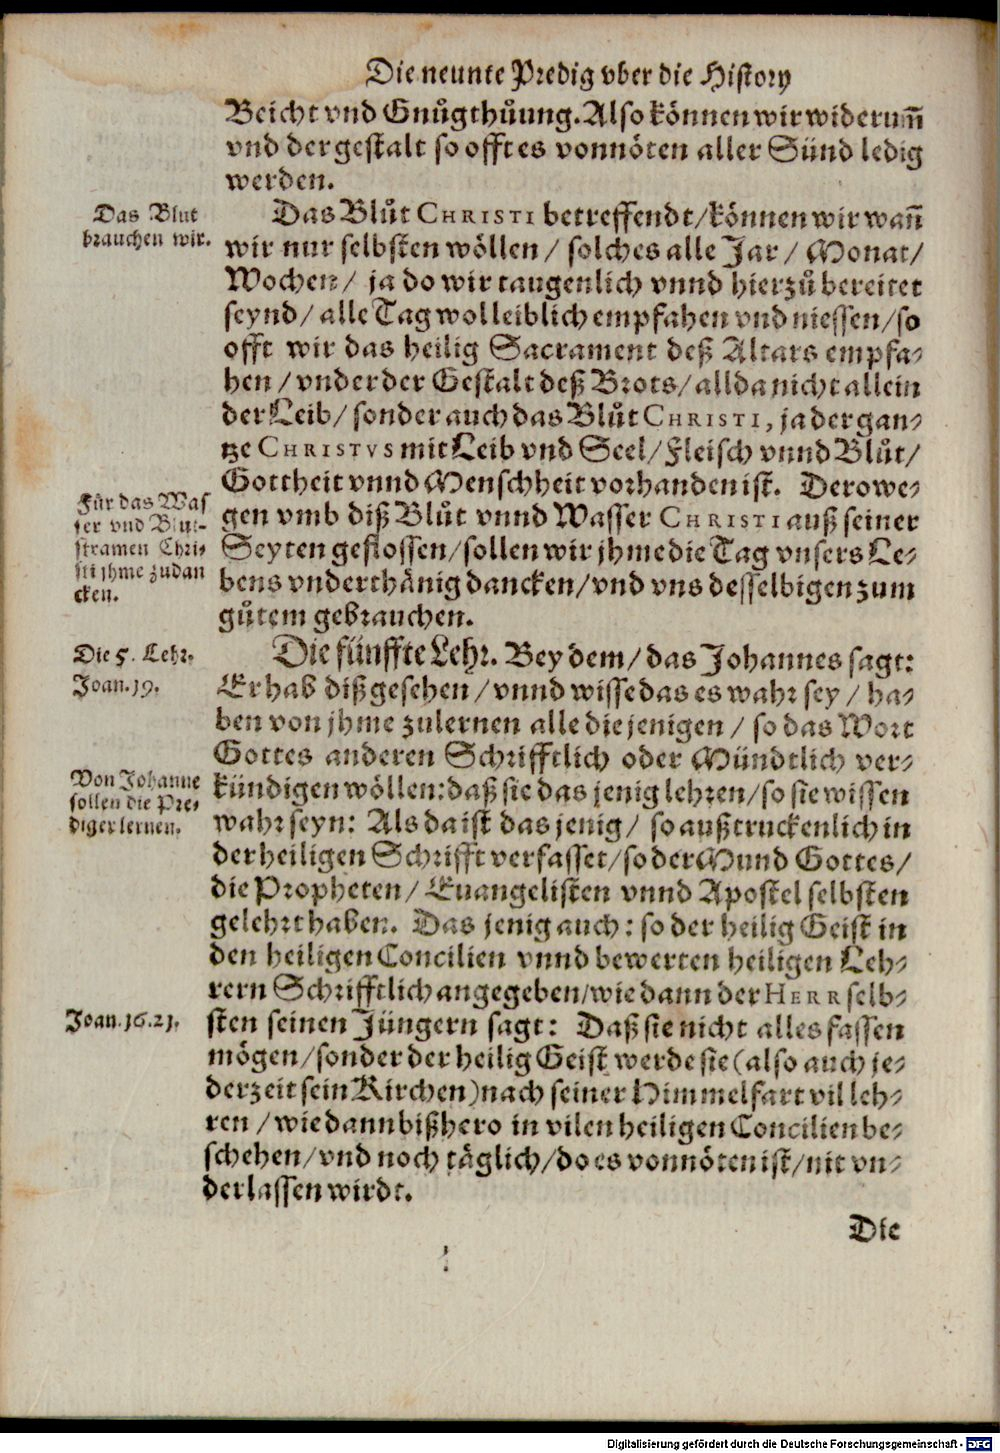 Die neunte Predig vber die History
Beicht vnd Gnůgthůung. Also können wir widerum̃
vnd dergestalt so offt es vonnöten aller Sünd ledig
werden.
Das Blut
brauchen wir.
Das Blůt CHRISTI betreffendt / können wir wañ
wir nur selbsten wöllen / solches alle Jar / Monat /
Wochen / ja do wir taugenlich vnnd hierzů bereitet
seynd / alle Tag wol leiblich empfahen vnd niessen / so
offt wir das heilig Sacrament deß Altars empfa-
hen / vnder der Gestalt deß Brots / allda nicht allein
der Leib / sonder auch das Blůt CHRISTI, ja der gan-
tze CHRISTVS mit Leib vnd Seel / Fleisch vnnd Blůt /
Gottheit vnnd Menschheit vorhanden ist. Derowe-
Für das Was
ser vnd Blut-
stramen Chri-
sti jhme zudan
cken.
gen vmb diß Blůt vnnd Wasser CHRISTI auß seiner
Seyten geflossen / sollen wir jhme die Tag vnsers Le-
bens vnderthänig dancken / vnd vns desselbigen zum
gůtem gebrauchen.
Die 5. Lehr.
Joan. 19.
Die fünffte Lehr. Bey dem / das Johannes sagt:
Er hab diß gesehen / vnnd wisse das es wahr sey / ha-
ben von jhme zulernen alle die jenigen / so das Wort
Gottes anderen Schrifftlich oder Mündtlich ver-
Von Johanne
sollen die Pre-
diger lernen.
kündigen wöllen: daß sie das jenig lehren / so sie wissen
wahr seyn: Als da ist das jenig / so außtruckenlich in
der heiligen Schrifft verfasset / so der Mund Gottes /
die Propheten / Euangelisten vnnd Apostel selbsten
gelehrt haben. Das jenig auch: so der heilig Geist in
den heiligen Concilien vnnd bewerten heiligen Leh-
rern Schrifftlich angegeben / wie dann der HERR selb-
Joan. 16. 21.
sten seinen Jüngern sagt: Daß sie nicht alles fassen
mögen / sonder der heilig Geist werde sie (also auch je-
derzeit sein Kirchen) nach seiner Himmelfart vil leh-
ren / wie dann bißhero in vilen heiligen Concilien be-
schehen / vnd noch täglich / do es vonnöten ist / nit vn-
derlassen wirdt.
Die
Digitalisierung gefördert durch die Deutsche Forschungsgemeinschaft - DFG